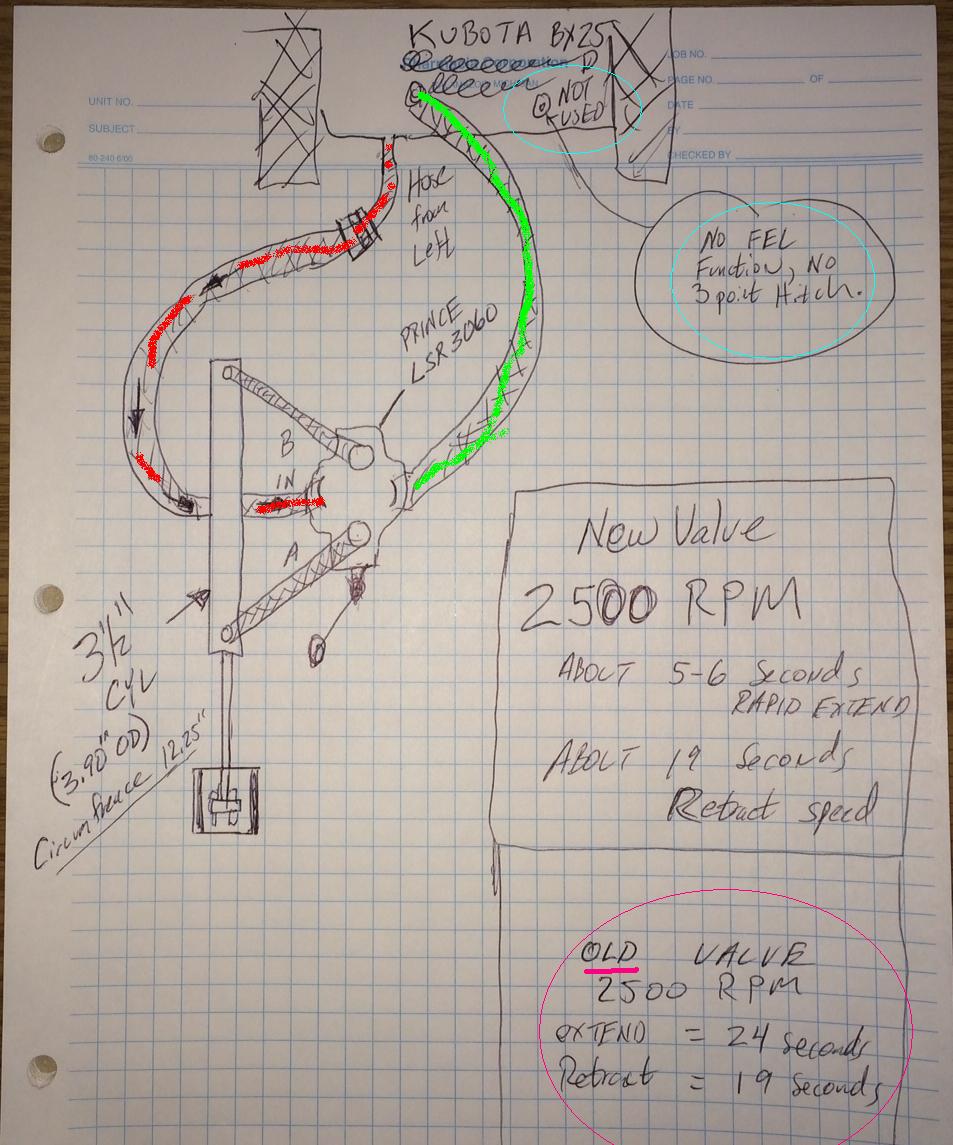 KUBOTA BX25
D
Corporation
UNIT NO.
SUBJECT
80-240 6/00
JOB NO.
PAGE NO. OF
DATE
BY
CHECKED BY
NOT
USED
Hose
from
Left
NO FEL
Function, NO
3 point Hitch.
PRINCE
LSR 3060
B
IN
A
3 1/2"
CYL
(3.90" OD)
Circumfrence 12.25"
New Valve
2500 RPM
ABOUT 5-6 Seconds
RAPID EXTEND
ABOUT 19 Seconds
Retract speed
OLD VALVE
2500 RPM
EXTEND = 24 seconds
Retract = 19 seconds